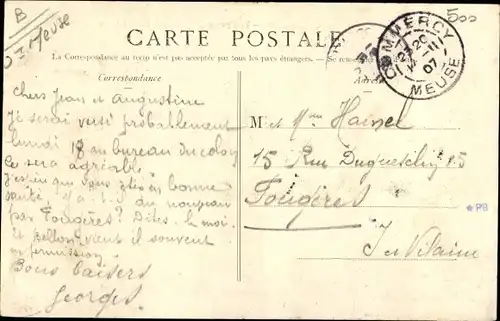 B
Meuse
500
CARTE POSTALE
La Correspondance au recto n'est pas acceptée par tous les pays étrangers. — Se
Correspondance
COMMERCY
20
11
07
MEUSE
Chers Jean et Augustine
Je serai versé probablement
lundi 18 au bureau du
Ce sera agréable.
que vous êtes en bonne
santé. Y a-t-il du nouveau
par Fougères? Dites-le moi.
Le vient il souvent
en permission.
Bons baisers
Georges
M et Mme
15 Rue Duguesclin 15
Fougères
I et Vilaine
PB